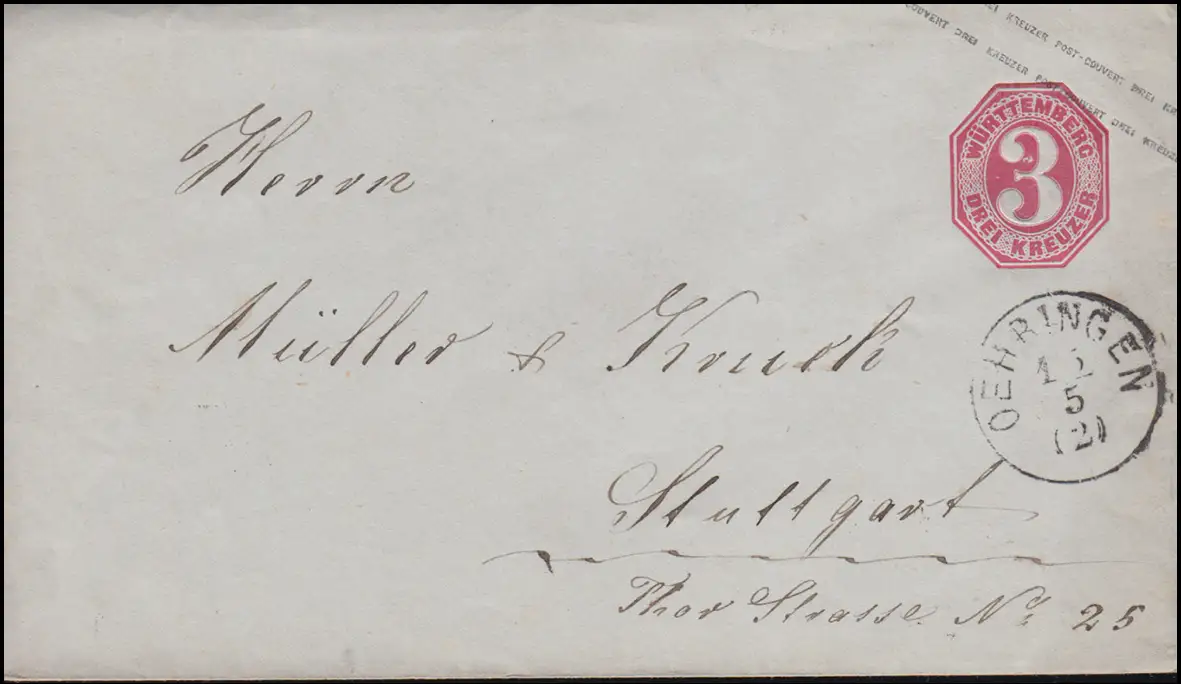 KREUZER POST-COUVERT DREI KR
COUVERT DREI KREUZER POST-COUVERT DREI KREUZE
WÜRTTEMBERG
3
DREI KREUZER
Herrn
Müller & Kruck
OEHRINGEN
5
(2)
Stuttgart
Thor Strasse No 25